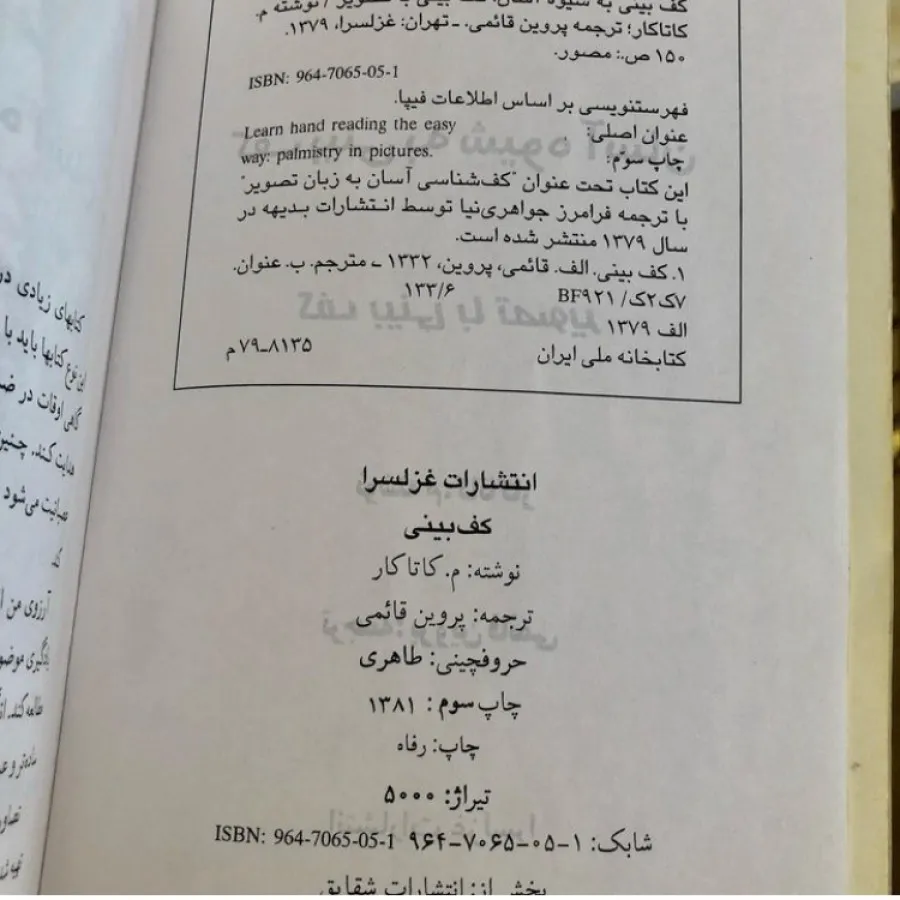 کف بینی به شیوه آسان: کف بینی با تصویر / نوشته م.
کاتاکار؛ ترجمه پروین قائمی. ـ تهران: غزلسرا، ۱۳۷۹.
۱۵۰ ص.: مصور.
ISBN: 964-7065-05-1
فهرستنویسی بر اساس اطلاعات فیپا.
عنوان اصلی: Learn hand reading the easy
way: palmistry in pictures.
چاپ سوم:
این کتاب تحت عنوان "کف‌شناسی آسان به زبان تصویر"
با ترجمه فرامرز جواهری‌نیا توسط انتشارات بدیهه در
سال ۱۳۷۹ منتشر شده است.
۱. کف بینی. الف. قائمی، پروین، ۱۳۳۲ ـ مترجم. ب. عنوان.
۷ک۲ک/ BF۹۲۱ ۱۳۳/۶
الف ۱۳۷۹
کتابخانه ملی ایران ۷۹ـ۸۱۳۵م
انتشارات غزلسرا
کف‌بینی
نوشته: م. کاتاکار
ترجمه: پروین قائمی
حروفچینی: طاهری
چاپ سوم: ۱۳۸۱
چاپ: رفاه
تیراژ: ۵۰۰۰
شابک: ۱-۰۵-۷۰۶۵-۹۶۴ ISBN: 964-7065-05-1
پخش از: انتشارات شقایق
کتابهای زیادی در
این نوع کتابها باید با
گاهی اوقات در ض
هدایت کند. چنین
می‌شود
آرزوی من ا
یادگیری موضو
مطالعه کند.
ساده‌تر و
تصاویر